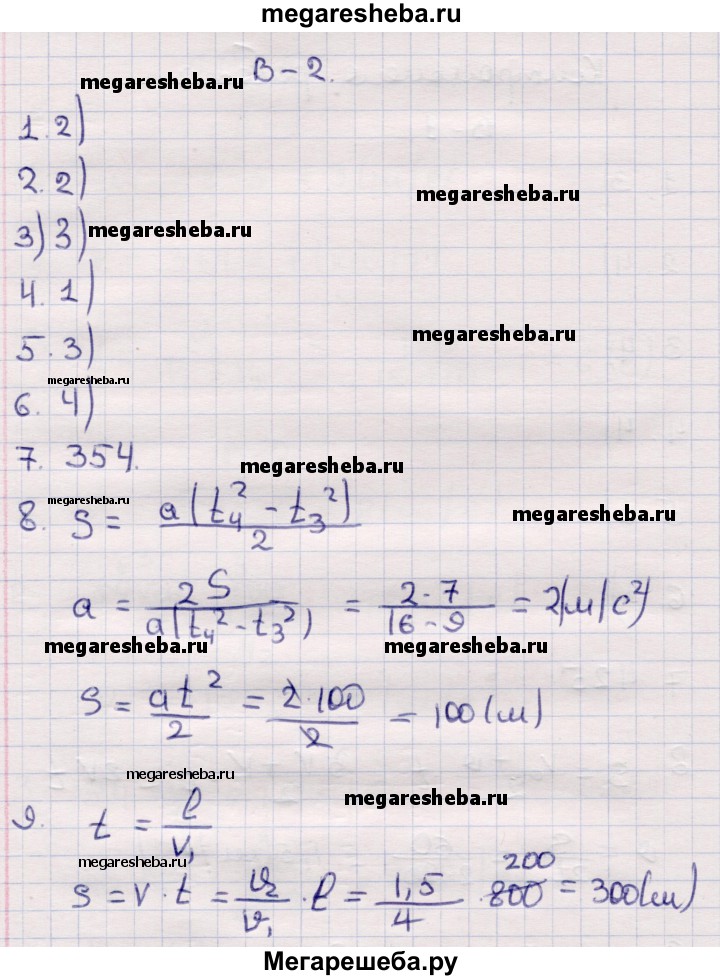 megaresheba.ru
В-2.
megaresheba.ru
1. 2)
2. 2)
megaresheba.ru
3) 3) megaresheba.ru
4. 1)
megaresheba.ru
5. 3)
megaresheba.ru
6. 4)
7. 354.
megaresheba.ru
megaresheba.ru
8. S = a(t₄² - t₃²)/2
megaresheba.ru
a = 2S/a(t₄² - t₃²) = 2·7/16-9 = 2(м/с²)
megaresheba.ru
megaresheba.ru
S = at²/2 = 2·100/2 = 100(м)
megaresheba.ru
megaresheba.ru
9. t = l/v₁
megaresheba.ru
200
S = v·t = v₂/v₁ · l = 1,5/4 · 800 = 300(м)
Мегарешеба.ру